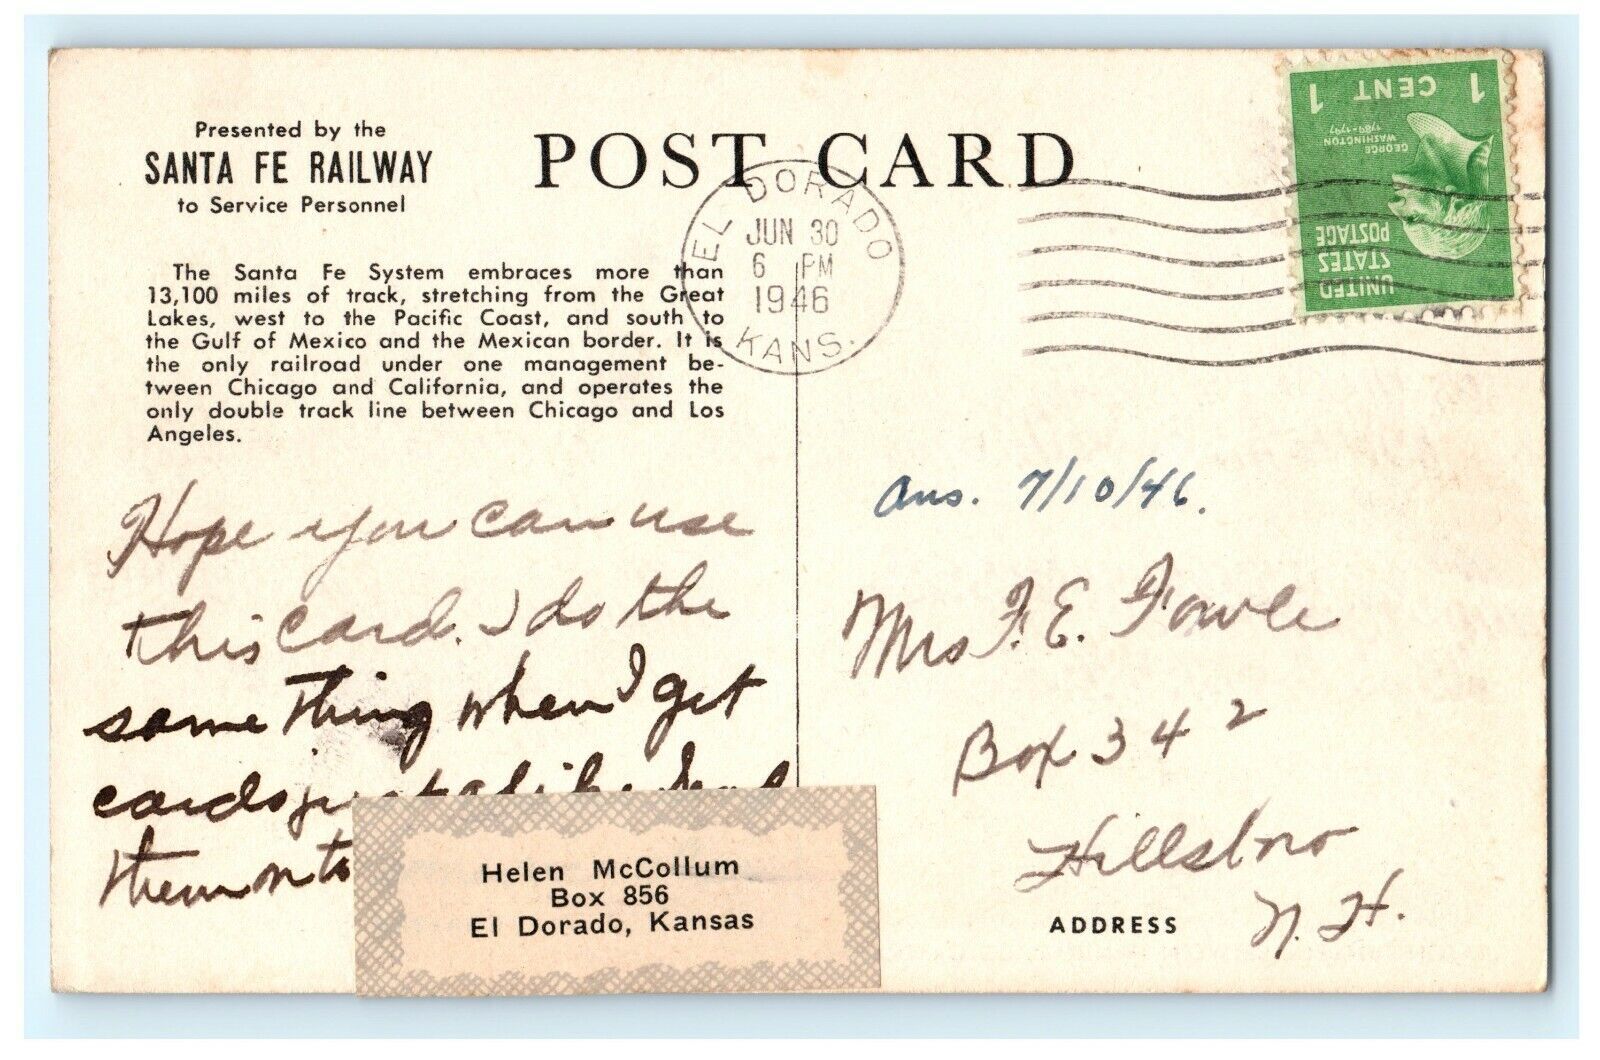 Presented by the
SANTA FE RAILWAY
to Service Personnel
POST CARD
The Santa Fe System embraces more than
13,100 miles of track, stretching from the Great
Lakes, west to the Pacific Coast, and south to
the Gulf of Mexico and the Mexican border. It is
the only railroad under one management be-
tween Chicago and California, and operates the
only double track line between Chicago and Los
Angeles.
EL DORADO
JUN 30
6 PM
1946
KANS.
UNITED
STATES
POSTAGE
GEORGE
WASHINGTON
1789-1797
1 CENT 1
Hope you can use
this card. I do the
same thing when I get
cards just alike
them on to
Helen McCollum
Box 856
El Dorado, Kansas
Ans. 7/10/46.
Mrs F. E. Fowle
Box 342
Hillsboro
N. H.
ADDRESS